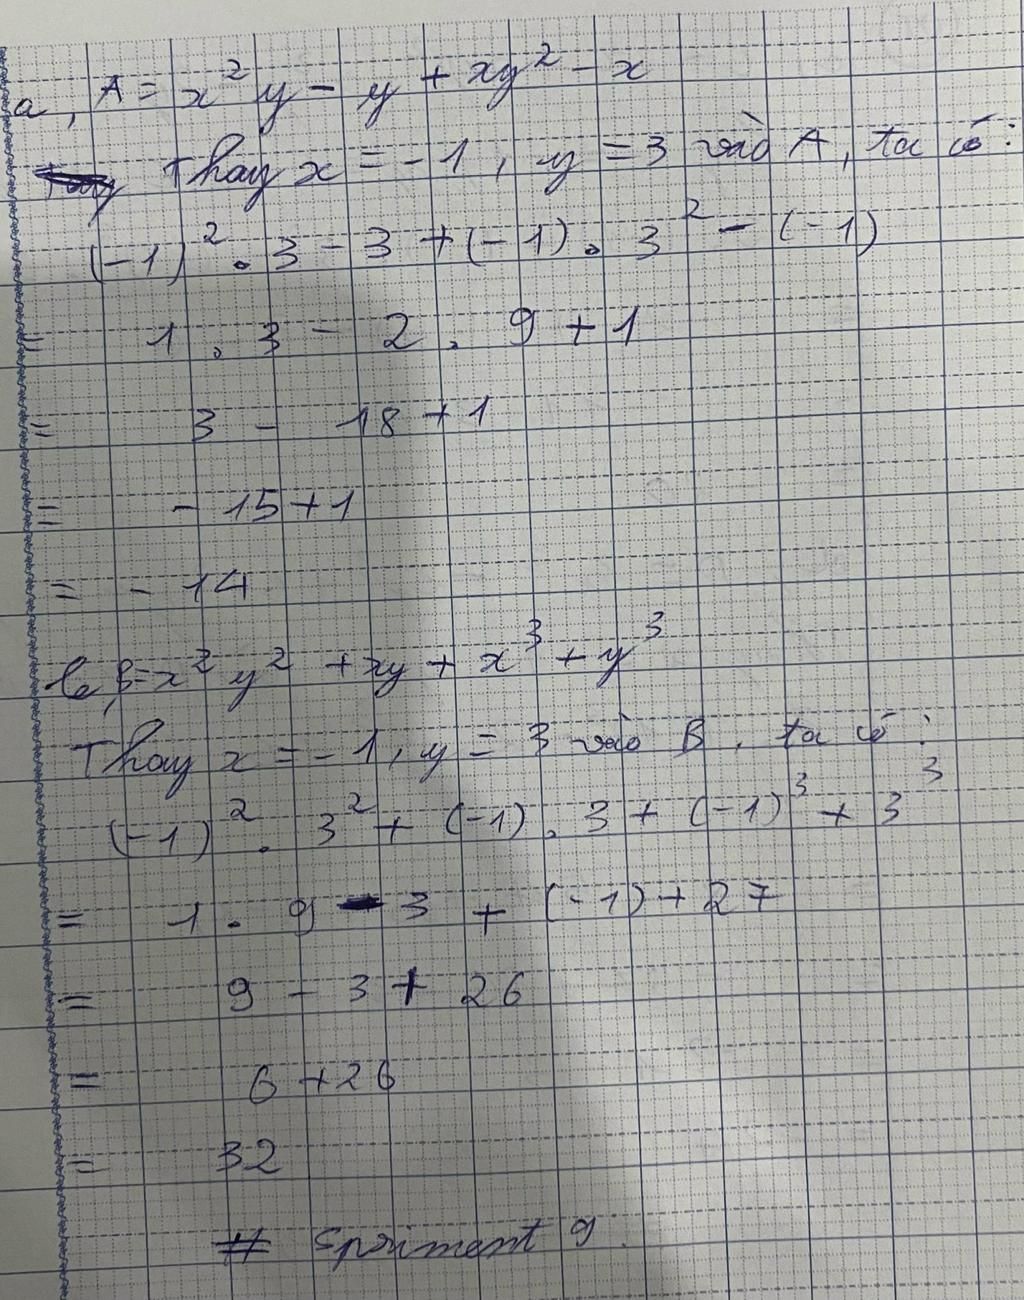 a, A = x² y - y + xy² - x
Thay x = -1, y = 3 vào A, ta có:
(-1)² . 3 - 3 + (-1) . 3² - (-1)
= 1 . 3 - 2 . 9 + 1
= 3 - 18 + 1
= - 15 + 1
= - 14
b, B = x² y² + xy + x³ + y³
Thay x = -1, y = 3 vào B, ta có:
(-1)² . 3² + (-1) . 3 + (-1)³ + 3³
= 1 . 9 - 3 + (-1) + 27
= 9 - 3 + 26
= 6 + 26
= 32
# Epriment 9.